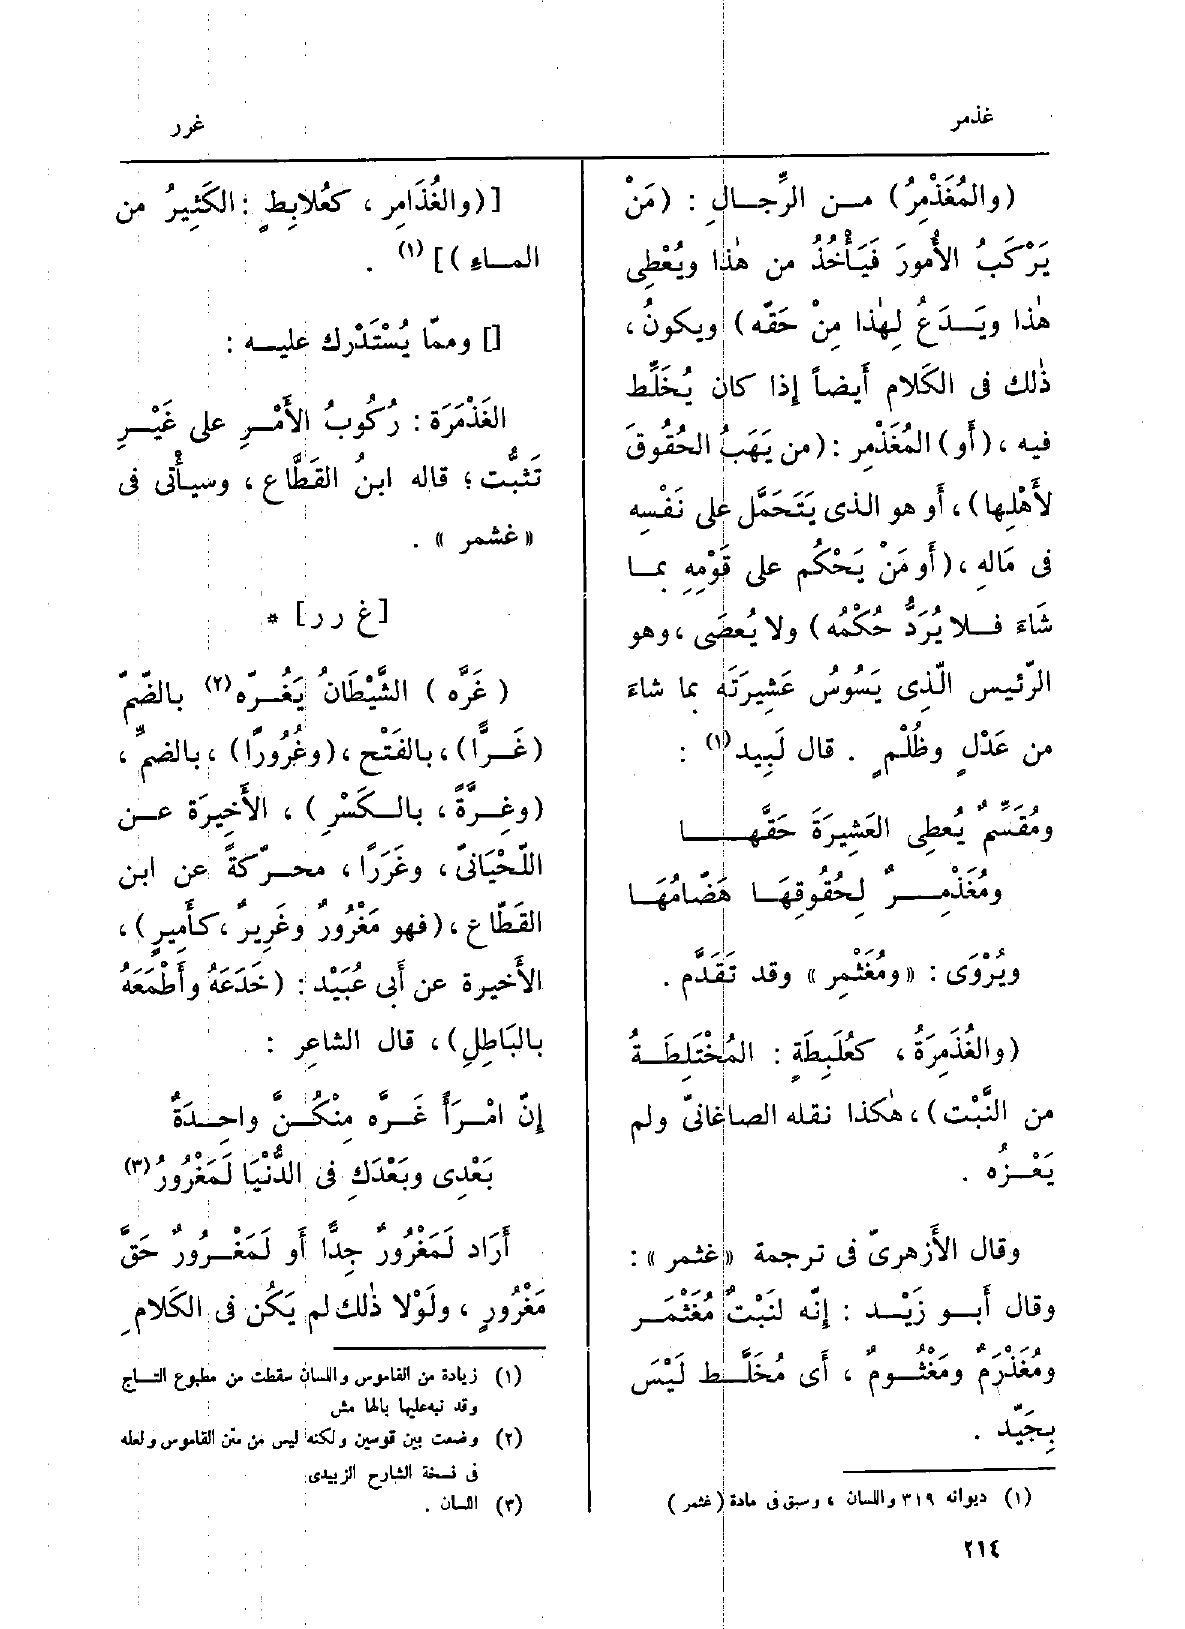 غذمر
غرر
(والمُغَذْمِرُ) مـن الرِّجـالِ : (مَنْ
يَرْكَبُ الأُمورَ فَيَأْخُذُ من هٰذا ويُعْطِى
هٰذا ويَـدَعُ لِهٰذا مِنْ حَقّه) ويكونُ ،
ذٰلك فى الكَلام أَيضاً إِذا كان يُخَلِّط
فيه ، (أَو) المُغَذْمِر : (من يَهَبُ الحُقُوقَ
لأَهْلِها) ، أَو هو الذى يَتَحَمَّل على نَفْسِه
فى مَالِه ، (أَو مَنْ يَحْكُم على قَوْمِهِ بمـا
شَاءَ فـلا يُرَدُّ حُكْمُه) ولا يُعصَى ، وهو
الرّئيس الّذِى يَسُوسُ عَشِيرَتَه بما شاءَ
من عَدْلٍ وظُلْمٍ . قال لَبِيد(١) :
ومُقَسِّمٌ يُعطِى العَشِيرَةَ حَقَّهـا
ومُغَذْمِـرٌ لِحُقُوقِهَـا هَضَّامُهَـا
ويُرْوَى : «ومُغَثْمِر» وقد تَقَدَّم .
(والغُذَمِرَةُ ، كعُلَبِطَةٍ : المُخْتَلِطَـةُ
من النَّبْت) ، هٰكذا نقله الصاغانىّ ولم
يَعْـزُه .
وقال الأَزهرىّ فى ترجمة «غثمر» :
وقال أَبـو زَيْـد : إِنّه لنَبْتٌ مُغَثْمَـر
ومُغَذْرَمٌ ومَغْثُـومٌ ، أَى مُخَلَّـط لَيْسَ
بِجَيّد .
(١) ديوانه ٣١٩ واللسان ، وسبق فى مادة (غثمر)
[(والغُذَامِر ، كعُلابِطٍ : الكَثِيرُ من
المـاءِ)] (١) .
[] وممّا يُسْتَدْرك عليـه :
الغَذْمَرَة : رُكُوبُ الأَمْـرِ على غَيْـرِ
تَثبُّت ؛ قاله ابنُ القَطَّاع ، وسيأْتى فى
«غشمر» .
[غ ر ر] *
(غَرَّه) الشَّيْطَانُ يَغُـرّه(٢) بالضّمّ
(غَـرًّا) ، بالفَتْح ، (وغُرُورًا) ، بالضمّ ،
(وغِـرَّةً ، بالـكَسْرِ) ، الأَخِيرَة عـن
اللّحْيَانىّ ، وغَرَرًا ، محـرّكةً عن ابن
القَطّاع ، (فهو مَغْرُورٌ وغَرِيرٌ ، كأَمِيرٍ) ،
الأَخيرة عن أَبى عُبَيْد : (خَدَعَهُ وأَطْمَعَهُ
بالبَاطِلِ) ، قال الشاعِر :
إِنّ امْـرَأً غَـرَّه مِنْكُـنَّ واحِـدَةٌ
بَعْدِى وبَعْدَكِ فى الدُّنْيَا لَمَغْرُورُ(٣)
أَرَاد لَمَغْرُورٌ جِدًّا أَو لَمَغْـرُورٌ حَقَّ
مَغْرُورٍ ، ولَوْلا ذٰلك لم يَكُن فى الكَلامِ
(١) زيادة من القاموس واللسان سقطت من مطبوع التـاج
وقد نبه عليها بالهامش
(٢) وضعت بين قوسين ولكنه ليس من متن القاموس ولعله
فى نسخة الشارح الزبيدى
(٣) اللسان .
٢١٤